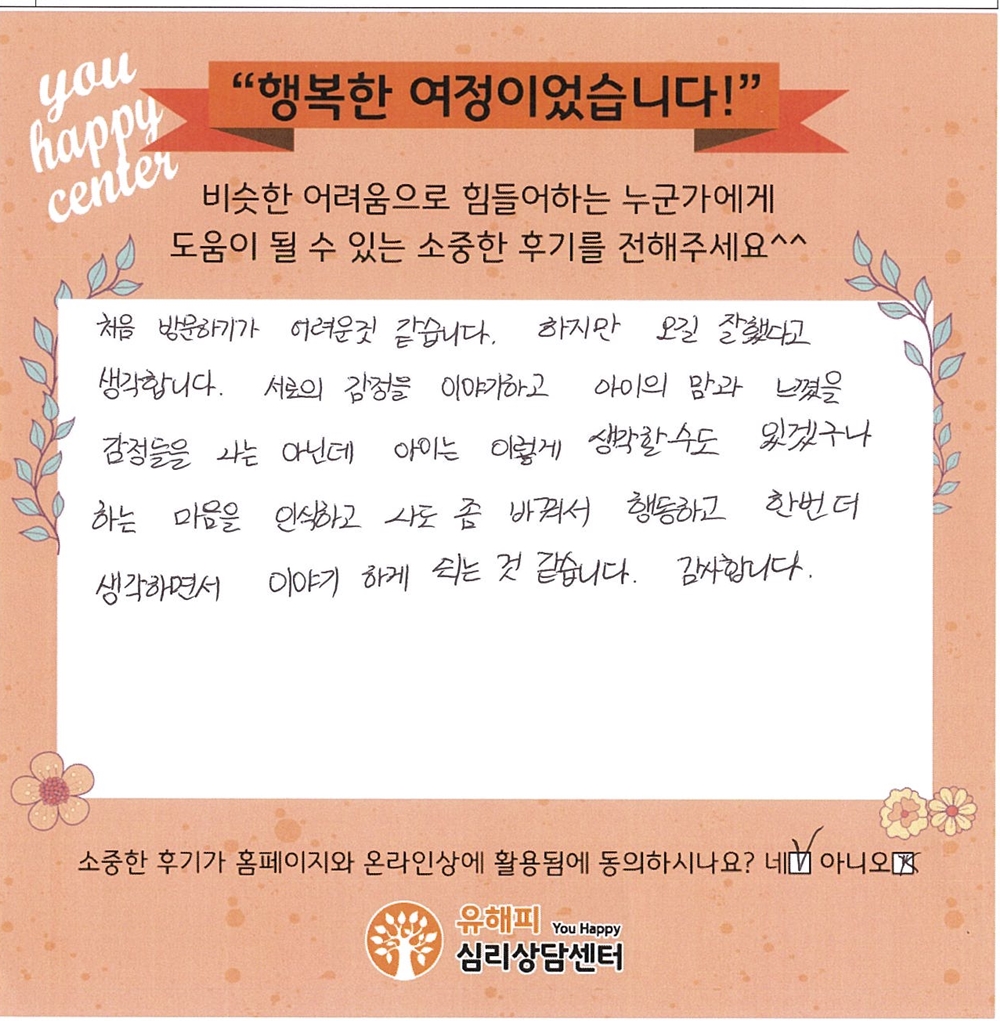 you
happy
center
“행복한 여정이었습니다!”
비슷한 어려움으로 힘들어하는 누군가에게
도움이 될 수 있는 소중한 후기를 전해주세요^^
처음 방문하기가 어려운것 같습니다. 하지만 오길 잘했다고
생각합니다. 서로의 감정을 이야기하고 아이의 맘과 느꼈을
감정들을 나는 아닌데 아이는 이렇게 생각할수도 있겠구나
하는 마음을 인식하고 나도 좀 바꿔서 행동하고 한번 더
생각하면서 이야기 하게 되는 것 같습니다. 감사합니다.
소중한 후기가 홈페이지와 온라인상에 활용됨에 동의하시나요? 네 아니오
유해피 You Happy
심리상담센터